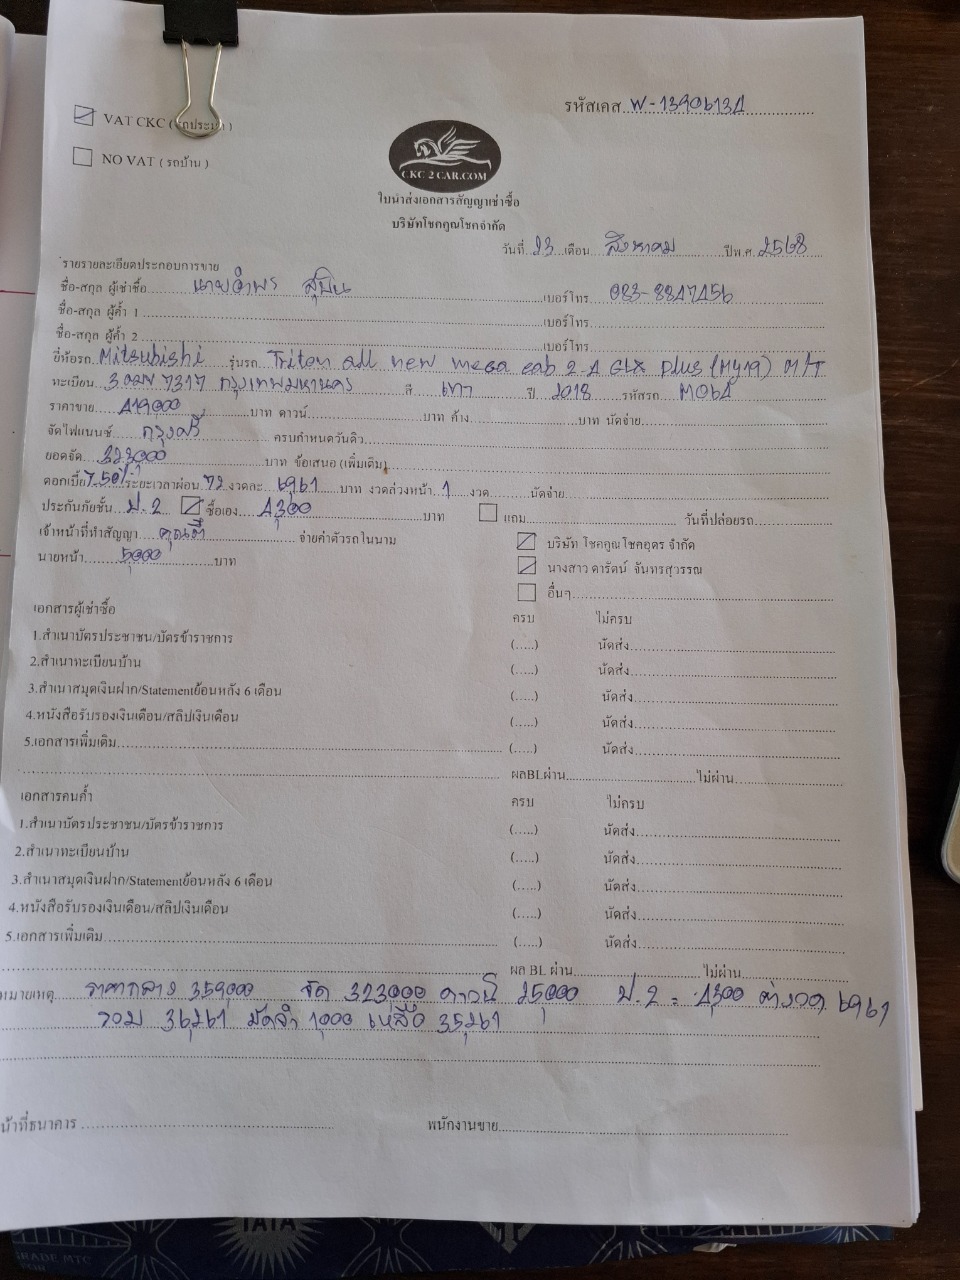 รหัสเคส W-1390613A
VAT CKC (รถประมูล)
NO VAT ( รถบ้าน )
CKC 2 CAR.COM
ใบนำส่งเอกสารสัญญาเช่าซื้อ
บริษัทโชคคูณโชคจำกัด
วันที่ 23 เดือน สิงหาคม ปีพ.ศ. 2568
รายรายละเอียดประกอบการขาย
ชื่อ-สกุล ผู้เช่าซื้อ นายอำพร สุบิน เบอร์โทร. 083-8847456
ชื่อ-สกุล ผู้ค้ำ 1 เบอร์โทร.
ชื่อ-สกุล ผู้ค้ำ 2 เบอร์โทร
ยี่ห้อรถ. Mitsubishi รุ่นรถ. Triton all new mega cab 2.4 GLX plus (MY19) M/T
ทะเบียน. 7317 กรุงเทพมหานคร สี เทา ปี 2018 รหัสรถ M064
ราคาขาย 419000 บาท ดาวน์ บาท ค้าง บาท นัดจ่าย
จัดไฟแนนซ์ กรุงศรี ครบกำหนดวันคิว
ยอดจัด 323000 บาท ข้อเสนอ (เพิ่มเติม)
ดอกเบี้ย 7.50% ระยะเวลาผ่อน 72 งวดละ 6961 บาท งวดล่วงหน้า 1 งวด นัดจ่าย
ประกันภัยชั้น ป.2 ซื้อเอง 4,300 บาท แถม วันที่ปล่อยรถ
เจ้าหน้าที่ทำสัญญา คุณตี๋ จ่ายค่าตัวรถในนาม บริษัท โชคคูณโชคอุดร จำกัด
นายหน้า 5,000 บาท นางสาว ดารัตน์ จันทรสุวรรณ
อื่นๆ
เอกสารผู้เช่าซื้อ ครบ ไม่ครบ
1.สำเนาบัตรประชาชน/บัตรข้าราชการ (.....) นัดส่ง
2.สำเนาทะเบียนบ้าน (.....) นัดส่ง
3.สำเนาสมุดเงินฝาก/Statementย้อนหลัง 6 เดือน (.....) นัดส่ง
4.หนังสือรับรองเงินเดือน/สลิปเงินเดือน (.....) นัดส่ง
5.เอกสารเพิ่มเติม (.....) นัดส่ง
ผลBLผ่าน ไม่ผ่าน
เอกสารคนค้ำ ครบ ไม่ครบ
1.สำเนาบัตรประชาชน/บัตรข้าราชการ (.....) นัดส่ง
2.สำเนาทะเบียนบ้าน (.....) นัดส่ง
3.สำเนาสมุดเงินฝาก/Statementย้อนหลัง 6 เดือน (.....) นัดส่ง
4.หนังสือรับรองเงินเดือน/สลิปเงินเดือน (.....) นัดส่ง
5.เอกสารเพิ่มเติม (.....) นัดส่ง
ผล BL ผ่าน ไม่ผ่าน
หมายเหตุ ราคากลาง 359000 จัด 323000 ดาวน์ 25,000 ป.2 = 4,300 ค่างวด 6961
รวม 36,261 มัดจำ 1,000 เหลือ 35,261
น้าที่ธนาคาร พนักงานขาย
TATA
GRADE MTC